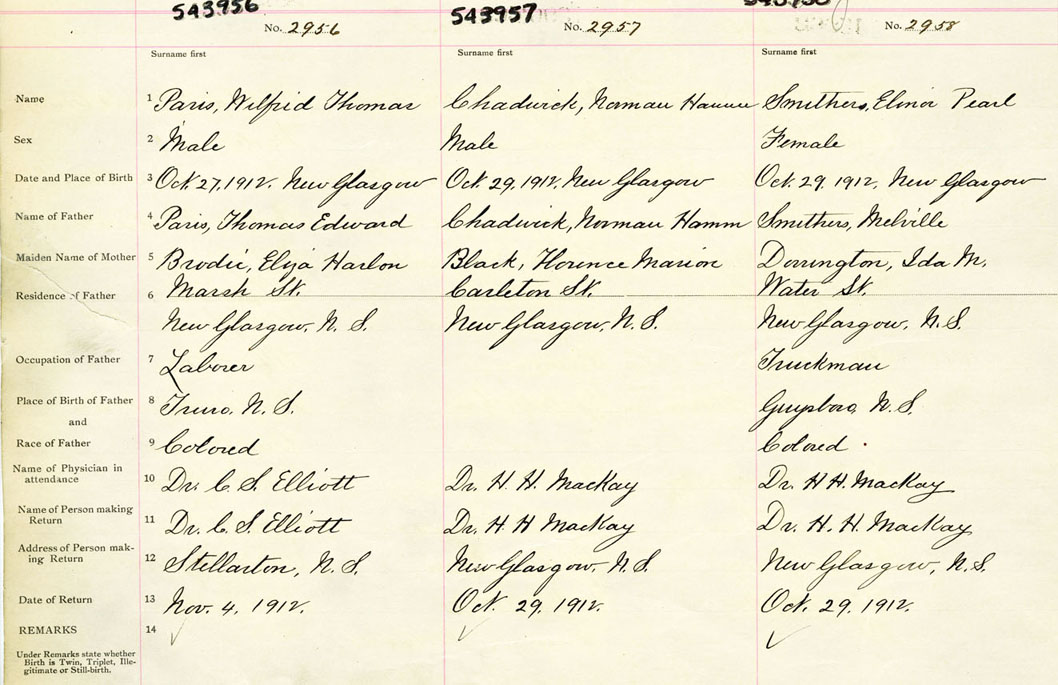 543956 543957
No. 2956 No. 2957 No. 2958
Surname first Surname first Surname first
Name 1 Paris, Wilfrid Thomas Chadwick, Norman Hamm Smithers, Elinor Pearl
Sex 2 Male Male Female
Date and Place of Birth 3 Oct. 27, 1912. New Glasgow Oct. 29, 1912. New Glasgow Oct. 29, 1912, New Glasgow
Name of Father 4 Paris, Thomas Edward Chadwick, Norman Hamm Smithers, Melville
Maiden Name of Mother 5 Brodie, Eliza Harlon Black, Florence Marion Dorrington, Ida M.
Residence of Father 6 Marsh St. Carleton St. Water St.
New Glasgow, N. S. New Glasgow, N. S. New Glasgow, N. S.
Occupation of Father 7 Laborer Truckman
Place of Birth of Father 8 Truro, N. S. Guysboro, N. S.
and
Race of Father 9 Colored Colored
Name of Physician in
attendance 10 Dr. C. S. Elliott Dr. H. H. MacKay Dr. H H. MacKay
Name of Person making
Return 11 Dr. C. S. Elliott Dr. H. H MacKay Dr. H. H. MacKay
Address of Person mak-
ing Return 12 Stellarton, N. S. New Glasgow, N. S. New Glasgow, N. S.
Date of Return 13 Nov. 4, 1912. Oct. 29, 1912. Oct. 29, 1912.
REMARKS 14
Under Remarks state whether
Birth is Twin, Triplet, Ille-
gitimate or Still-birth.